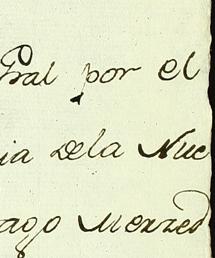 Gral por el
ia dela Nue
ago Merzed